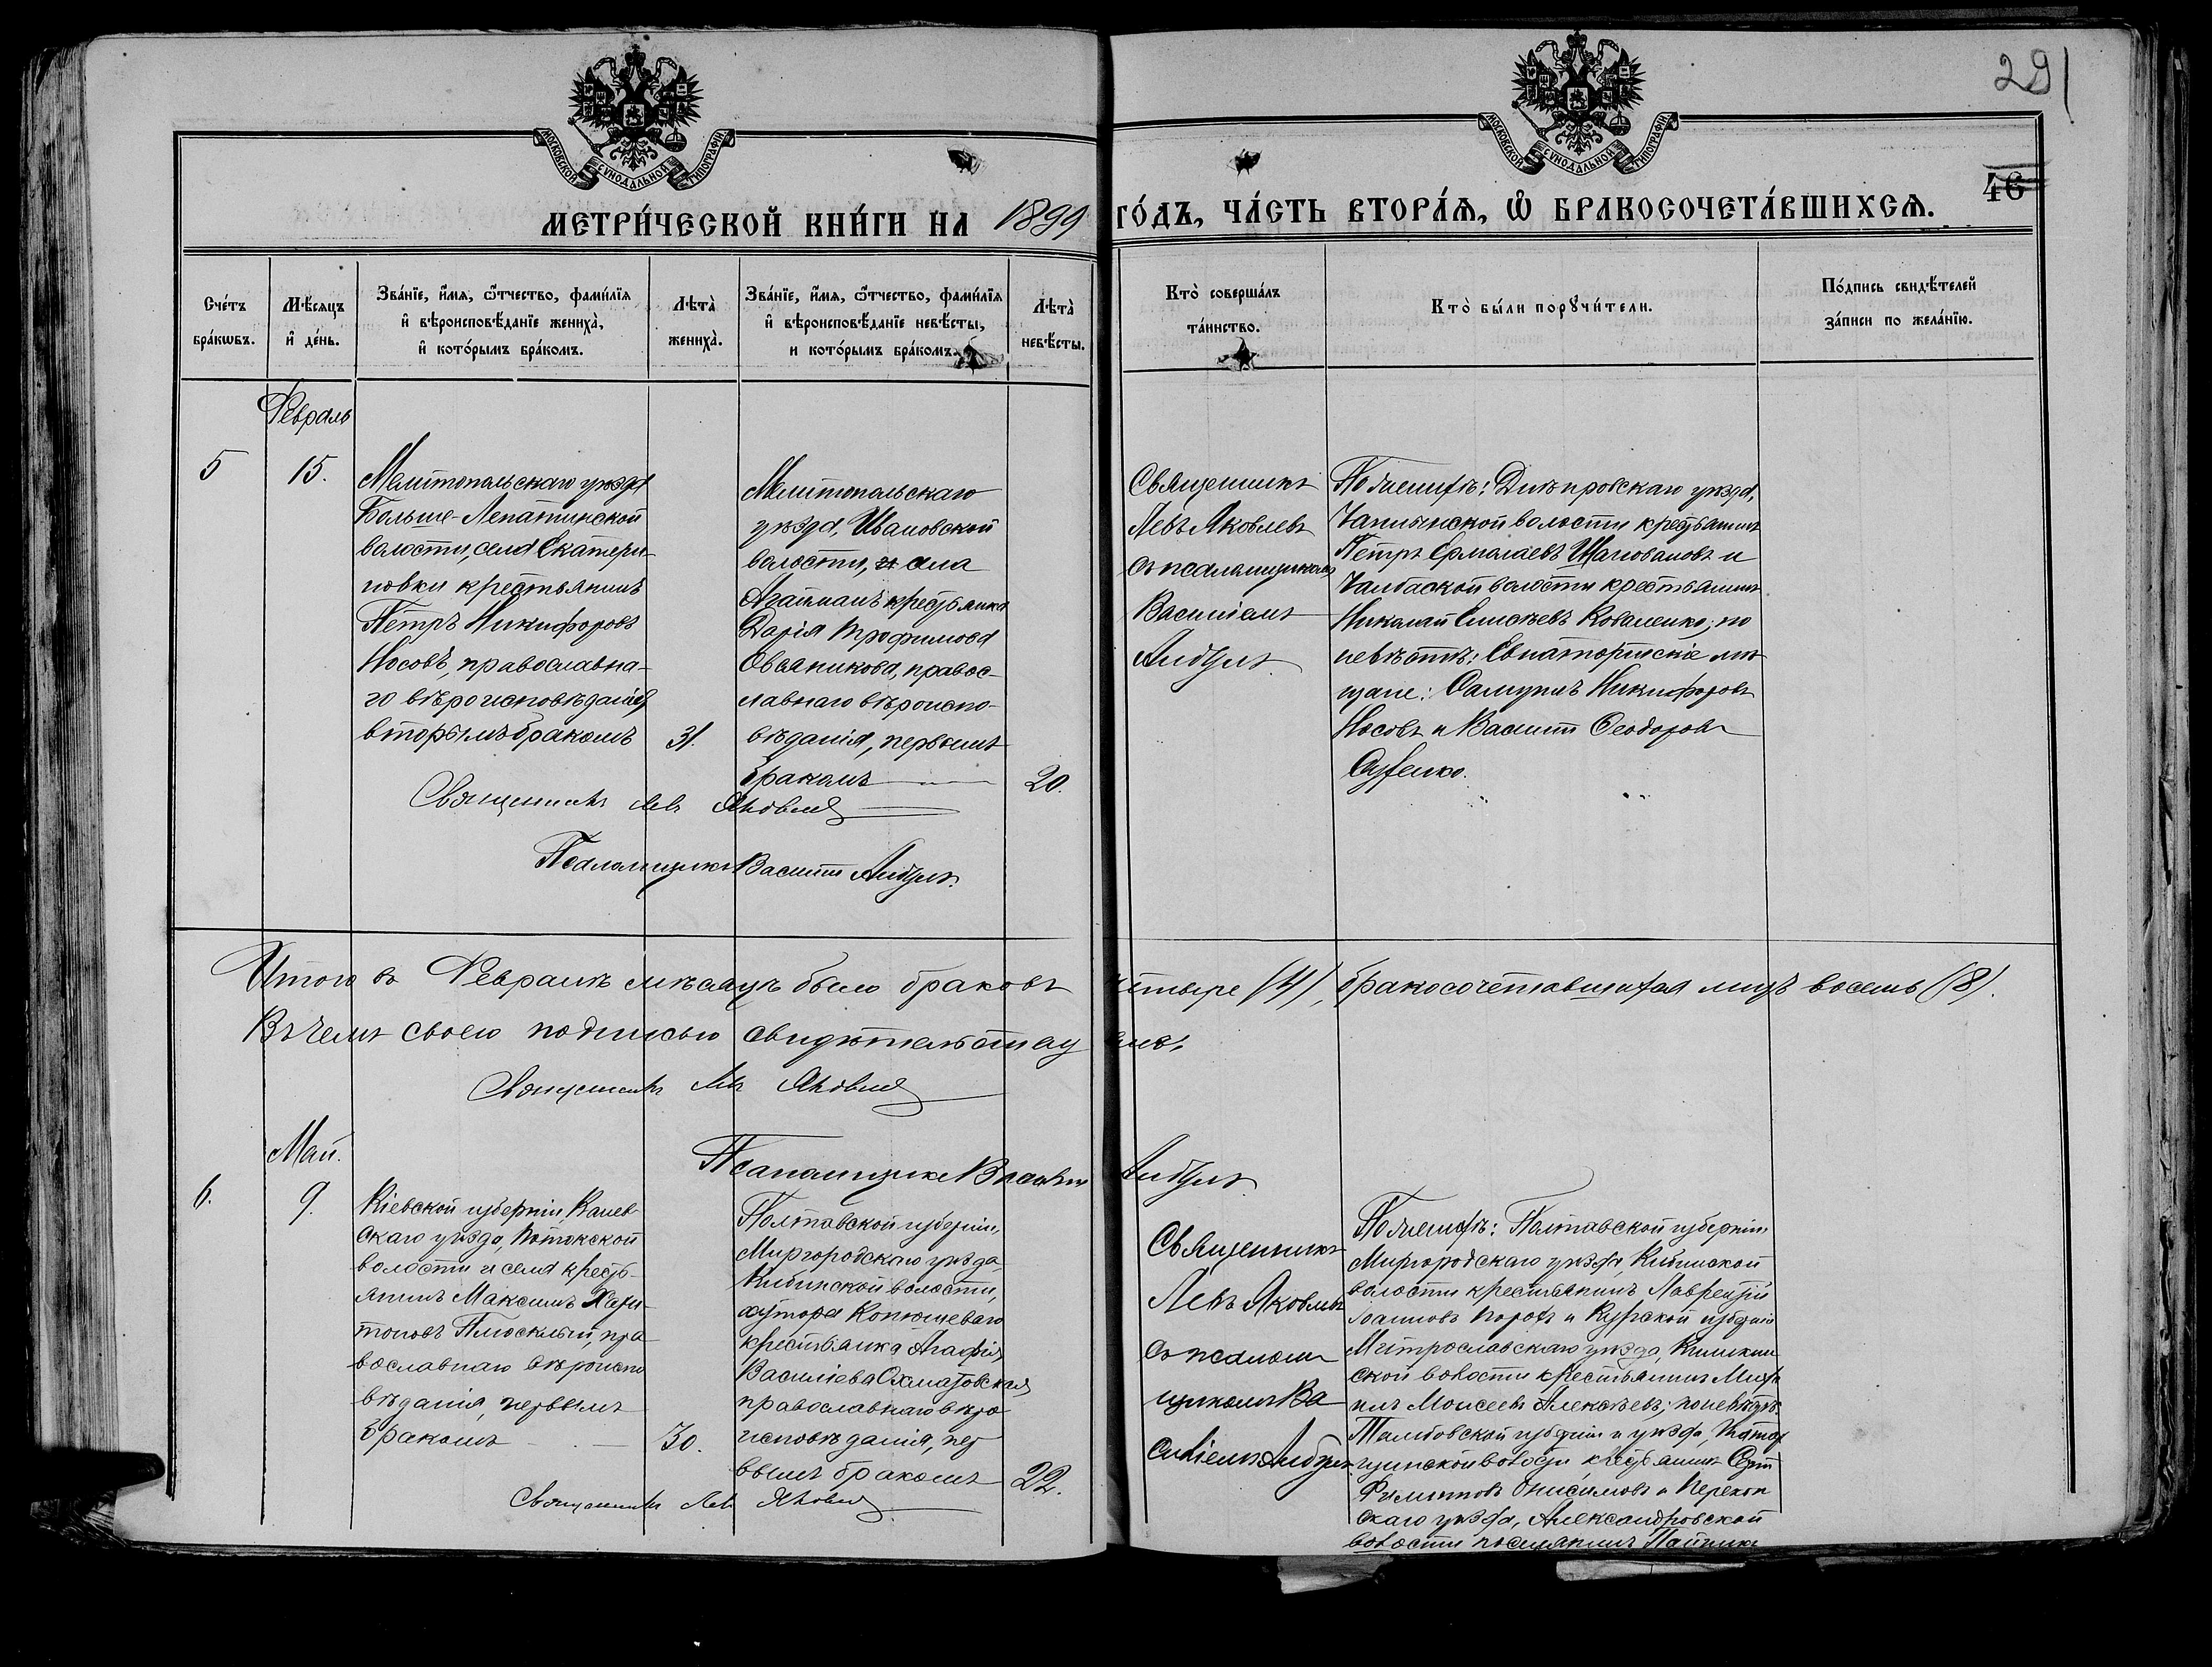 291
МОСКОВСКОЙ СѴНОДАЛЬНОЙ ТИПОГРАФІИ
МОСКОВСКОЙ СѴНОДАЛЬНОЙ ТИПОГРАФІИ
46
МЕТРИ́ЧЕСКОЙ КНИ́ГИ НА 1899 ГО́ДЪ, ЧА́СТЬ ВТОРА́Я, Ѽ БРАКОСОЧЕТА́ВШИХСЯ.
Сче́тъ
бра́кѡвъ.
Мѣ́сяцъ
и҆ де́нь.
Зва́нїе, и҆́мя, ѻ҆́тчество, фами́лїя
и҆ вѣроисповѣ́данїе жениха̀,
и҆ кото́рымъ бра́комъ.
Лѣта̀
жениха̀.
Зва́нїе, и҆́мя, ѻ҆́тчество, фами́лїя
и҆ вѣроисповѣ́данїе невѣ́сты,
и кото́рымъ бра́комъ.
Лѣта̀
невѣ́сты.
Кто̀ соверша́лъ
та́инство.
Кто̀ бы́ли порꙋчи́тели.
По́дпись свидѣ́телей
за́писи по жела́нїю.
Февраль
5
15.
Мелитопольскаго уѣзда
Больше-Лепатинской
волости, села Екатери-
новки крестьянинъ
Петръ Никифоровъ
Носовъ, православна-
го вѣроисповѣданія
вторымъ бракомъ
31.
Мелитопольскаго
уѣзда, Ивановской
волости, села
Агайманъ крестьянка
Дарія Трофимова
Овсяникова, правос-
лавнаго вѣроиспо-
вѣданія, первымъ
бракомъ
20.
Священникъ
Левъ Яковлевъ
съ псаломщикомъ
Василіемъ
Поженихѣ: Днѣпровскаго уѣзда,
Чаплынской волости крестьянинъ
Петръ Ермолаевъ Шаповаловъ и
Чалбаской волости крестьянинъ
Николай Елисѣевъ Коваленко; по
невѣстѣ: Евпаторійскіе мѣ
щане: Самуилъ Никифоровъ
Носовъ и Василій Ѳеодоровъ
Священникъ Левъ Яковлевъ
Псаломщикъ Василій
Итого въ Февралѣ мѣсяцѣ было браковъ четыре (4), бракосочетавшихся лицъ восемь (8).
Въ чемъ своею подписью свидѣтельствуемъ,
Священникъ Левъ Яковлевъ
Псаломщикъ Василій
Май.
6.
9.
Кіевской губерніи, Канев
скаго уѣзда, Потокской
волости и села кресть-
янинъ Максимъ Хари-
тоновъ Плоскій, пра
вославнаго вѣроиспо
вѣданія, первымъ
бракомъ
30.
Полтавской губерніи,
Миргородскаго уѣзда
Кибинской волости,
хутора
крестьянка Агафія
Василіева Охматовская
православнаго вѣро
исповѣданія, пер
вымъ бракомъ
22.
Священникъ
Левъ Яковлевъ
съ псалом
щикомъ Ва
силіемъ
Поженихѣ: Полтавской губерніи
Миргородскаго уѣзда, Кибинской
волости крестьянинъ Лаврентій
Іоанновъ и Курской губерніи
уѣзда,
ской волости крестьянинъ Миха
илъ Моисеевъ Алексѣевъ; по невѣстѣ:
Тамбовской губерніи и уѣзда,
волости, крестьянинъ
Филипповъ Онисимовъ и Перекоп
скаго уѣзда, Александровской
волости поселянинъ
Священникъ Левъ Яковлевъ